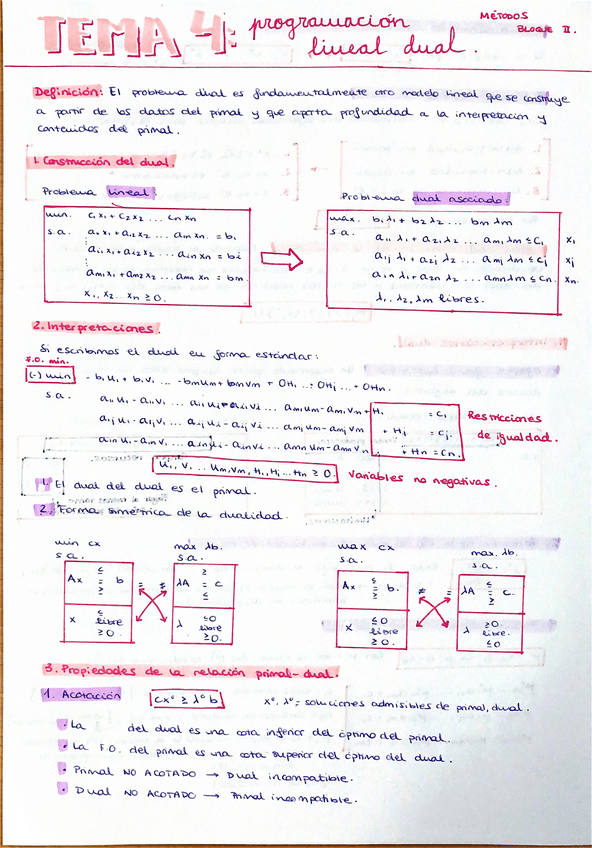 TEMA 4: programación lineal dual.
MÉTODOS BLOQUE II.
Definición: El problema dual es fundamentalmente otro modelo lineal que se construye
a partir de los datos del primal y que aporta profundidad a la interpretación y
contenidos del primal.
1. Construcción del dual.
Problema lineal:
min. C₁X₁ + C₂X₂ ... Cn Xn
s.a. a₁₁X₁ + a₁₂X₂ ... a₁nXn = b₁
ai₁X₁ + ai₂X₂ ... ainXn = bi
am₁X₁ + am₂X₂ ... amnXn = bm
X₁, X₂ ... Xn ≥ 0.
Problema dual asociado:
max. b₁λ₁ + b₂λ₂ ... bmλm
s.a. a₁₁λ₁ + a₂₁λ₂ ... am₁λm ≤ C₁ X₁
a₁jλ₁ + a₂jλ₂ ... amjλm ≤ Cj Xj
a₁nλ₁ + a₂nλ₂ ... amnλm ≤ Cn. Xn.
λ₁, λ₂, λm libres.
2. Interpretaciones.
Si escribimos el dual en forma estándar:
F.O. min.
(-) min - b₁u₁ + b₁v₁ ... - bmum + bmvm + 0H₁ ... + 0Hj ... + 0Hn.
s.a. a₁₁u₁ - a₁₁v₁ ... am₁um - am₁vm + H₁ = C₁
a₁ju₁ - a₁jv₁ ... amjum - amjvm + Hj = Cj.
a₁nu₁ - a₁nv₁ ... amnum - amnvn + Hn = Cn.
Restricciones de igualdad.
u₁, v₁ ... um, vm, H₁, Hj ... Hn ≥ 0. Variables no negativas.
1. El dual del dual es el primal.
2. Forma simétrica de la dualidad.
min cx
s.a.
Ax ≤ = ≥ b
x ≤ libre ≥0.
= ≠
max λb.
s.a.
λA ≥ = ≤ c
λ ≤0 libre ≥0.
max cx
s.a.
Ax ≤ = ≥ b.
x ≤0 libre ≥0.
≠ =
max. λb.
s.a.
λA ≤ = ≥ c.
λ ≥0. libre. ≤0
3. Propiedades de la relación primal-dual.
1. Acotación cx⁰ ≥ λ⁰b x⁰, λ⁰ = soluciones admisibles de primal, dual.
· La del dual es una cota inferior del óptimo del primal.
· La F.O. del primal es una cota superior del óptimo del dual.
· Primal NO ACOTADO → Dual incompatible.
· Dual NO ACOTADO → Primal incompatible.